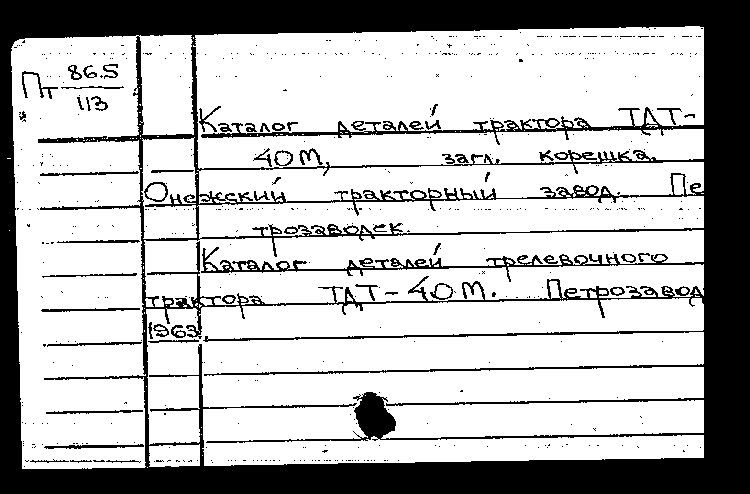 Пт 86.5
113
Каталог деталей трактора ТДТ-
40М, загл. корешка.
Онежский тракторный завод. Пе
трозаводск.
Каталог деталей трелевочного
трактора ТДТ-40М. Петрозавод
1963.